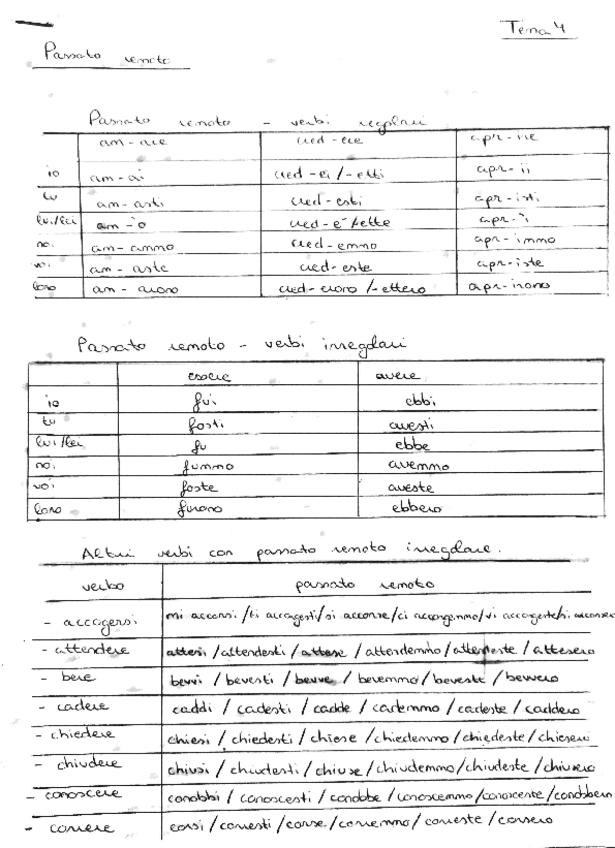 Tema 4
Passato remoto
Passato remoto - verbi regolari
am-are cred-ere apr-ire
io am-ai cred-ei/-etti apr-ii
tu am-asti cred-esti apr-isti
lui/lei am-ò cred-é/ette apr-ì
noi am-ammo cred-emmo apr-immo
voi am-aste cred-este apr-iste
loro am-arono cred-erono/-ettero apr-irono
Passato remoto - verbi irregolari
essere avere
io fui ebbi
tu fosti avesti
lui/lei fu ebbe
noi fummo avemmo
voi foste aveste
loro furono ebbero
Altri verbi con passato remoto irregolare.
verbo passato remoto
- accorgersi mi accorsi/ti accorgesti/si accorse/ci accorgemmo/vi accorgeste/si accorsero
- attendere attesi/attendesti/attese/attendemmo/attendeste/attesero
- bere bevvi/bevesti/bevve/bevemmo/beveste/bevvero
- cadere caddi/cadesti/cadde/cademmo/cadeste/caddero
- chiedere chiesi/chiedesti/chiese/chiedemmo/chiedeste/chiesero
- chiudere chiusi/chiudesti/chiuse/chiudemmo/chiudeste/chiusero
- conoscere conobbi/conoscesti/conobbe/conoscemmo/conosceste/conobbero
- correre corsi/corresti/corse/corremmo/correste/corsero